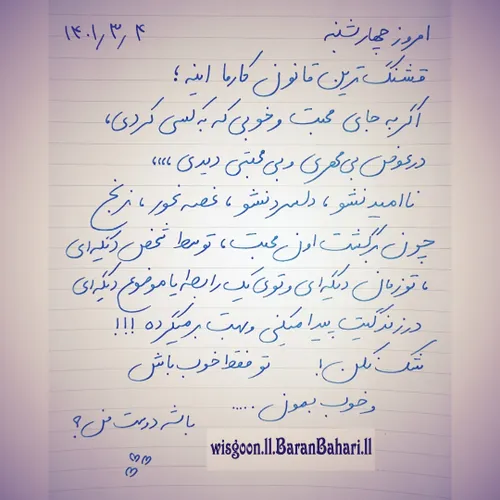 امروز چهارشنبه ۱۴۰۱٫۳٫۴
قشنگ ترین قانون کارما اینه ؛
اگر به جای محبت و خوبی که به کسی کردی،
در عوض بی مهری و بی محبتی دیدی ،،،،
ناامید نشو ، دلسرد نشو ، غصه نخور ، نرنج
چون برگشت اون محبت ، توسط شخص دیگه ای
، تو زمان دیگه ای و توی یک رابطه یا موضوع دیگه ای
در زندگیت پیدا میکنی و بهت برمیگرده !!!
شک نکن ! تو فقط خوب باش
و خوب بمون .....
باشه دوست من ؟
wisgoon.ll.BaranBahari.ll